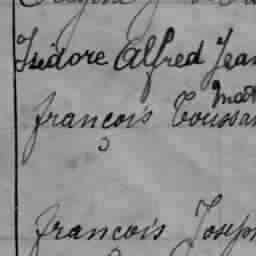 Isidore Alfred Jean
françois Toussai
françois Joseph